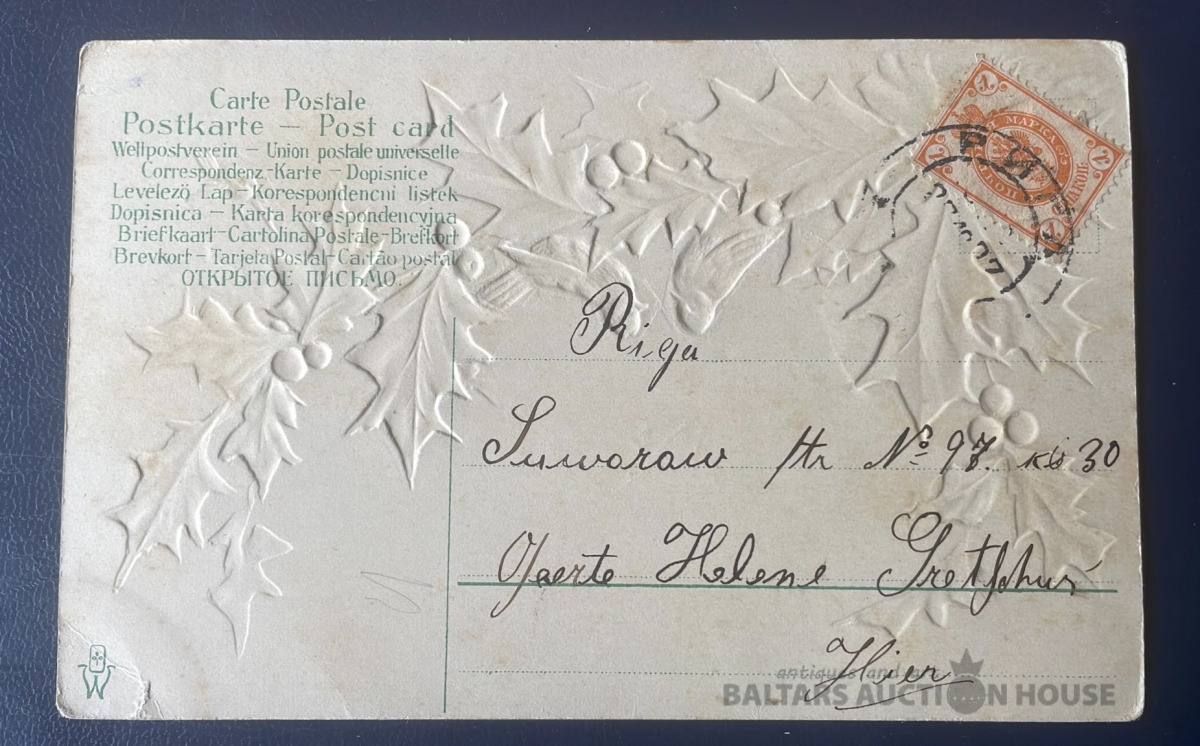 Carte Postale
Postkarte – Post card
Weltpostverein – Union postale universelle
Correspondenz-Karte – Dopisnice
Levelező Lap – Korespondencni listek
Dopisnica – Karta korespondencyjna
Briefkaart – Cartolina Postale – Brefkort
Brevkort – Tarjeta Postal – Cartão postal
ОТКРЫТОЕ ПИСЬМО.
1
МАРКА
1
1
1
Riga
Suworow str № 97. кв 30
Helene
Hier
W
antiques and art
BALTARS AUCTION HOUSE